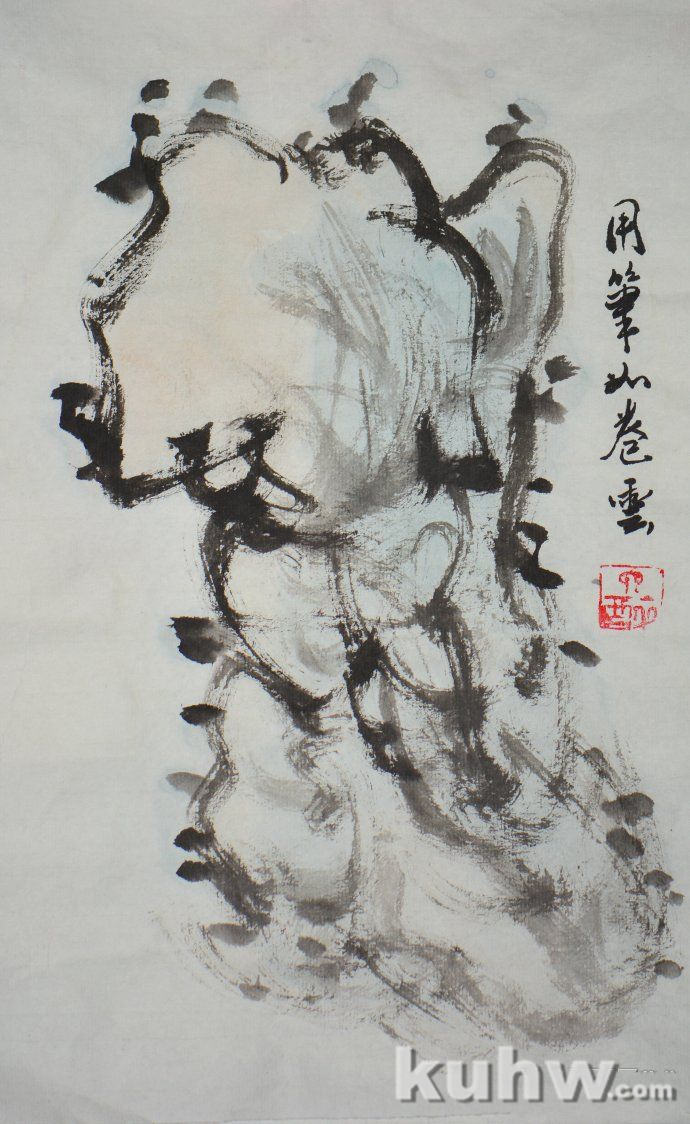 用筆如卷雲
kuhw.com